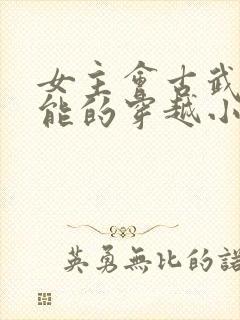 女主會古武
能的穿越小
英勇無比的諾